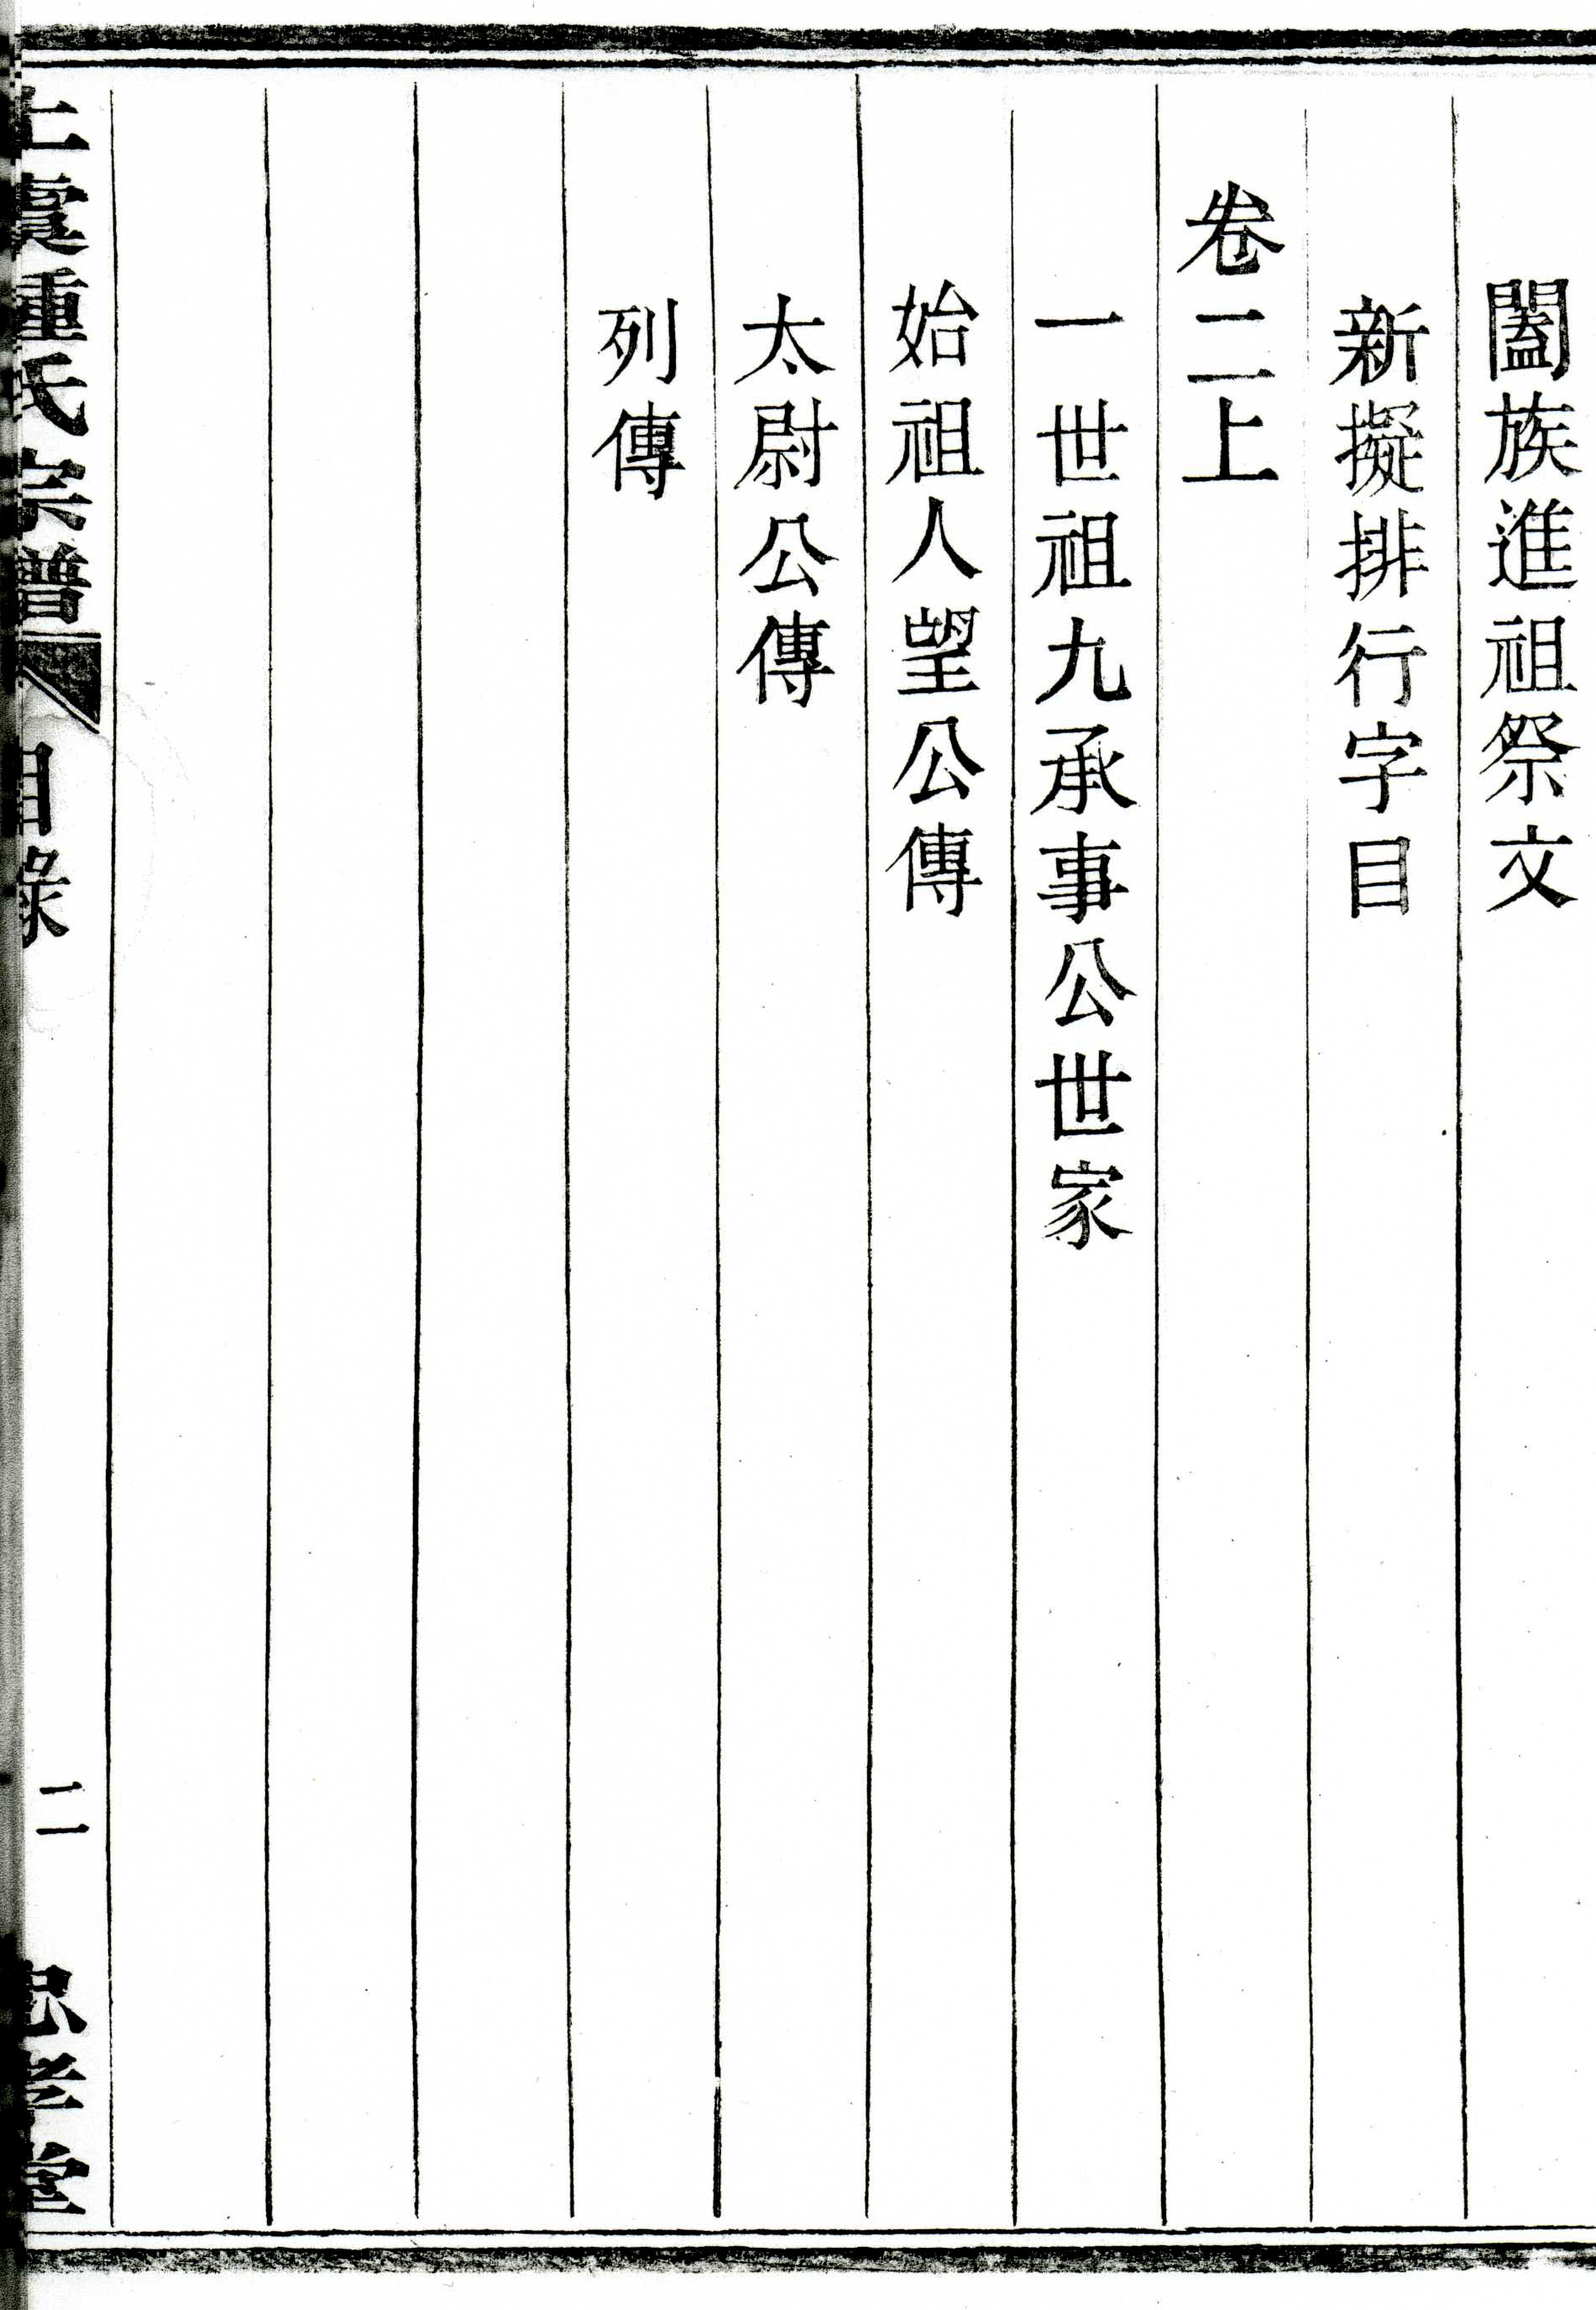 闔族進祖祭文
新擬排行字目
卷二上
一世祖九承事公世家
始祖人望公傳
太尉公傳
列傳
上虞鍾氏宗譜
目錄
二
忠孝堂